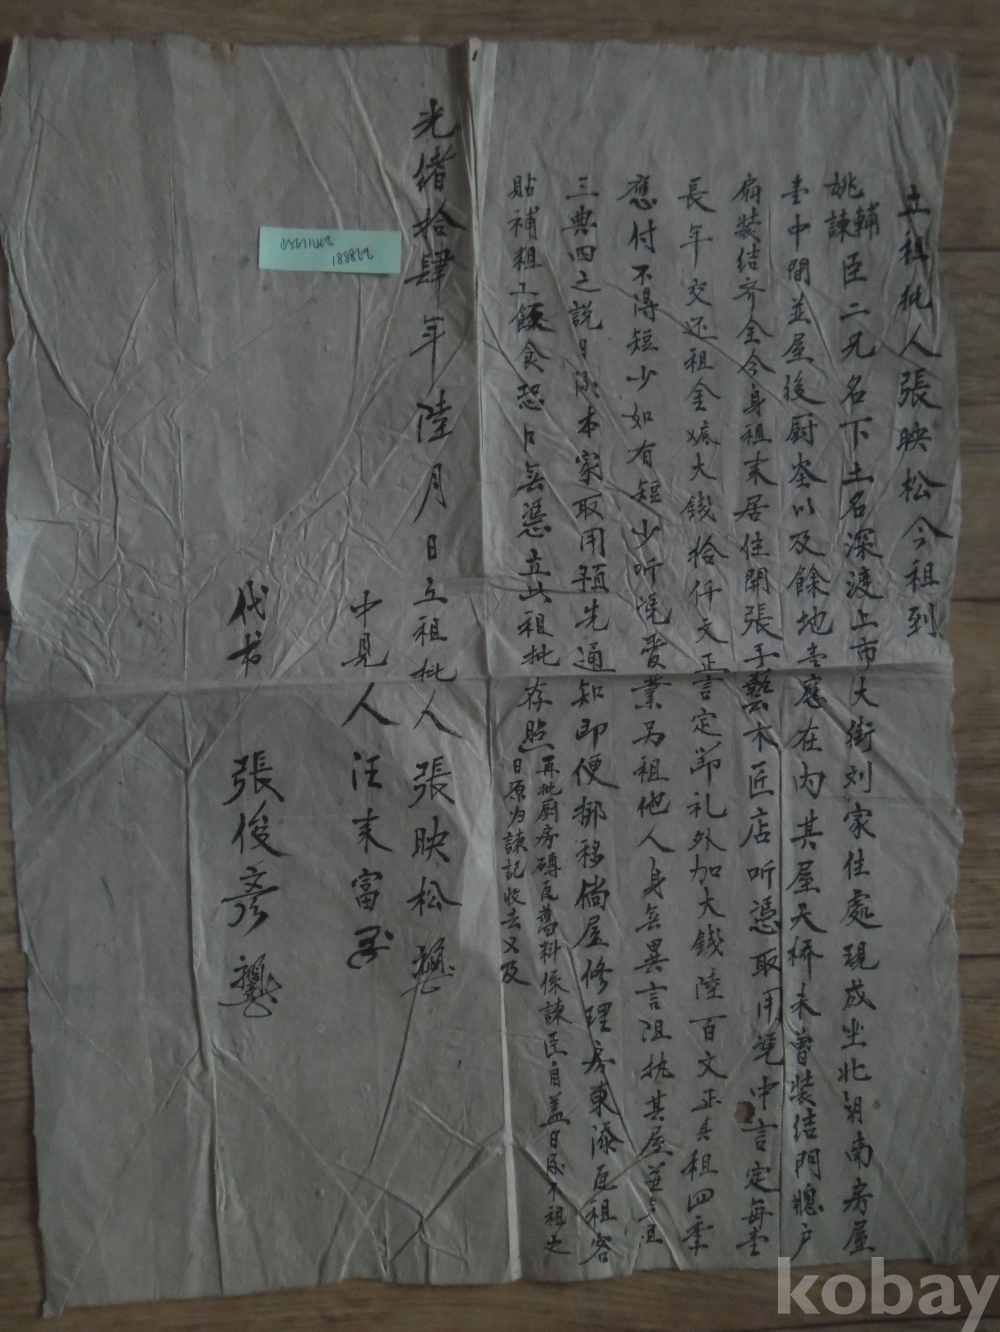 立租批人張映松今租到
姚輔諫臣二兄名下土名深渡上市大街刘家住處現成坐北朝南房屋
壹中間並屋後厨垒以及餘地壹應在内其屋天桥未曾裝结門牕户
扇装结齐全今身租来居住開張手藝木匠店听憑取用凴中言定每壹
長年交还租金 大錢拾仟文正言定節礼外加大錢陸百文正其租四季
應付不得短少如有短少听凴受業另租他人身無異言阻执其屋並無
三典四之説日后本家取用預先通知即便挪移倘屋修理房東添瓦租客
貼補粗工 食恐口無憑立此租批存照
再批厨房磚瓦舊料係諫臣自盖日后不租之
日原为諫記收去又及
光緒拾肆年陸月日立租批人張映松
中見人汪来富
代书張俊彦
1888
kobay